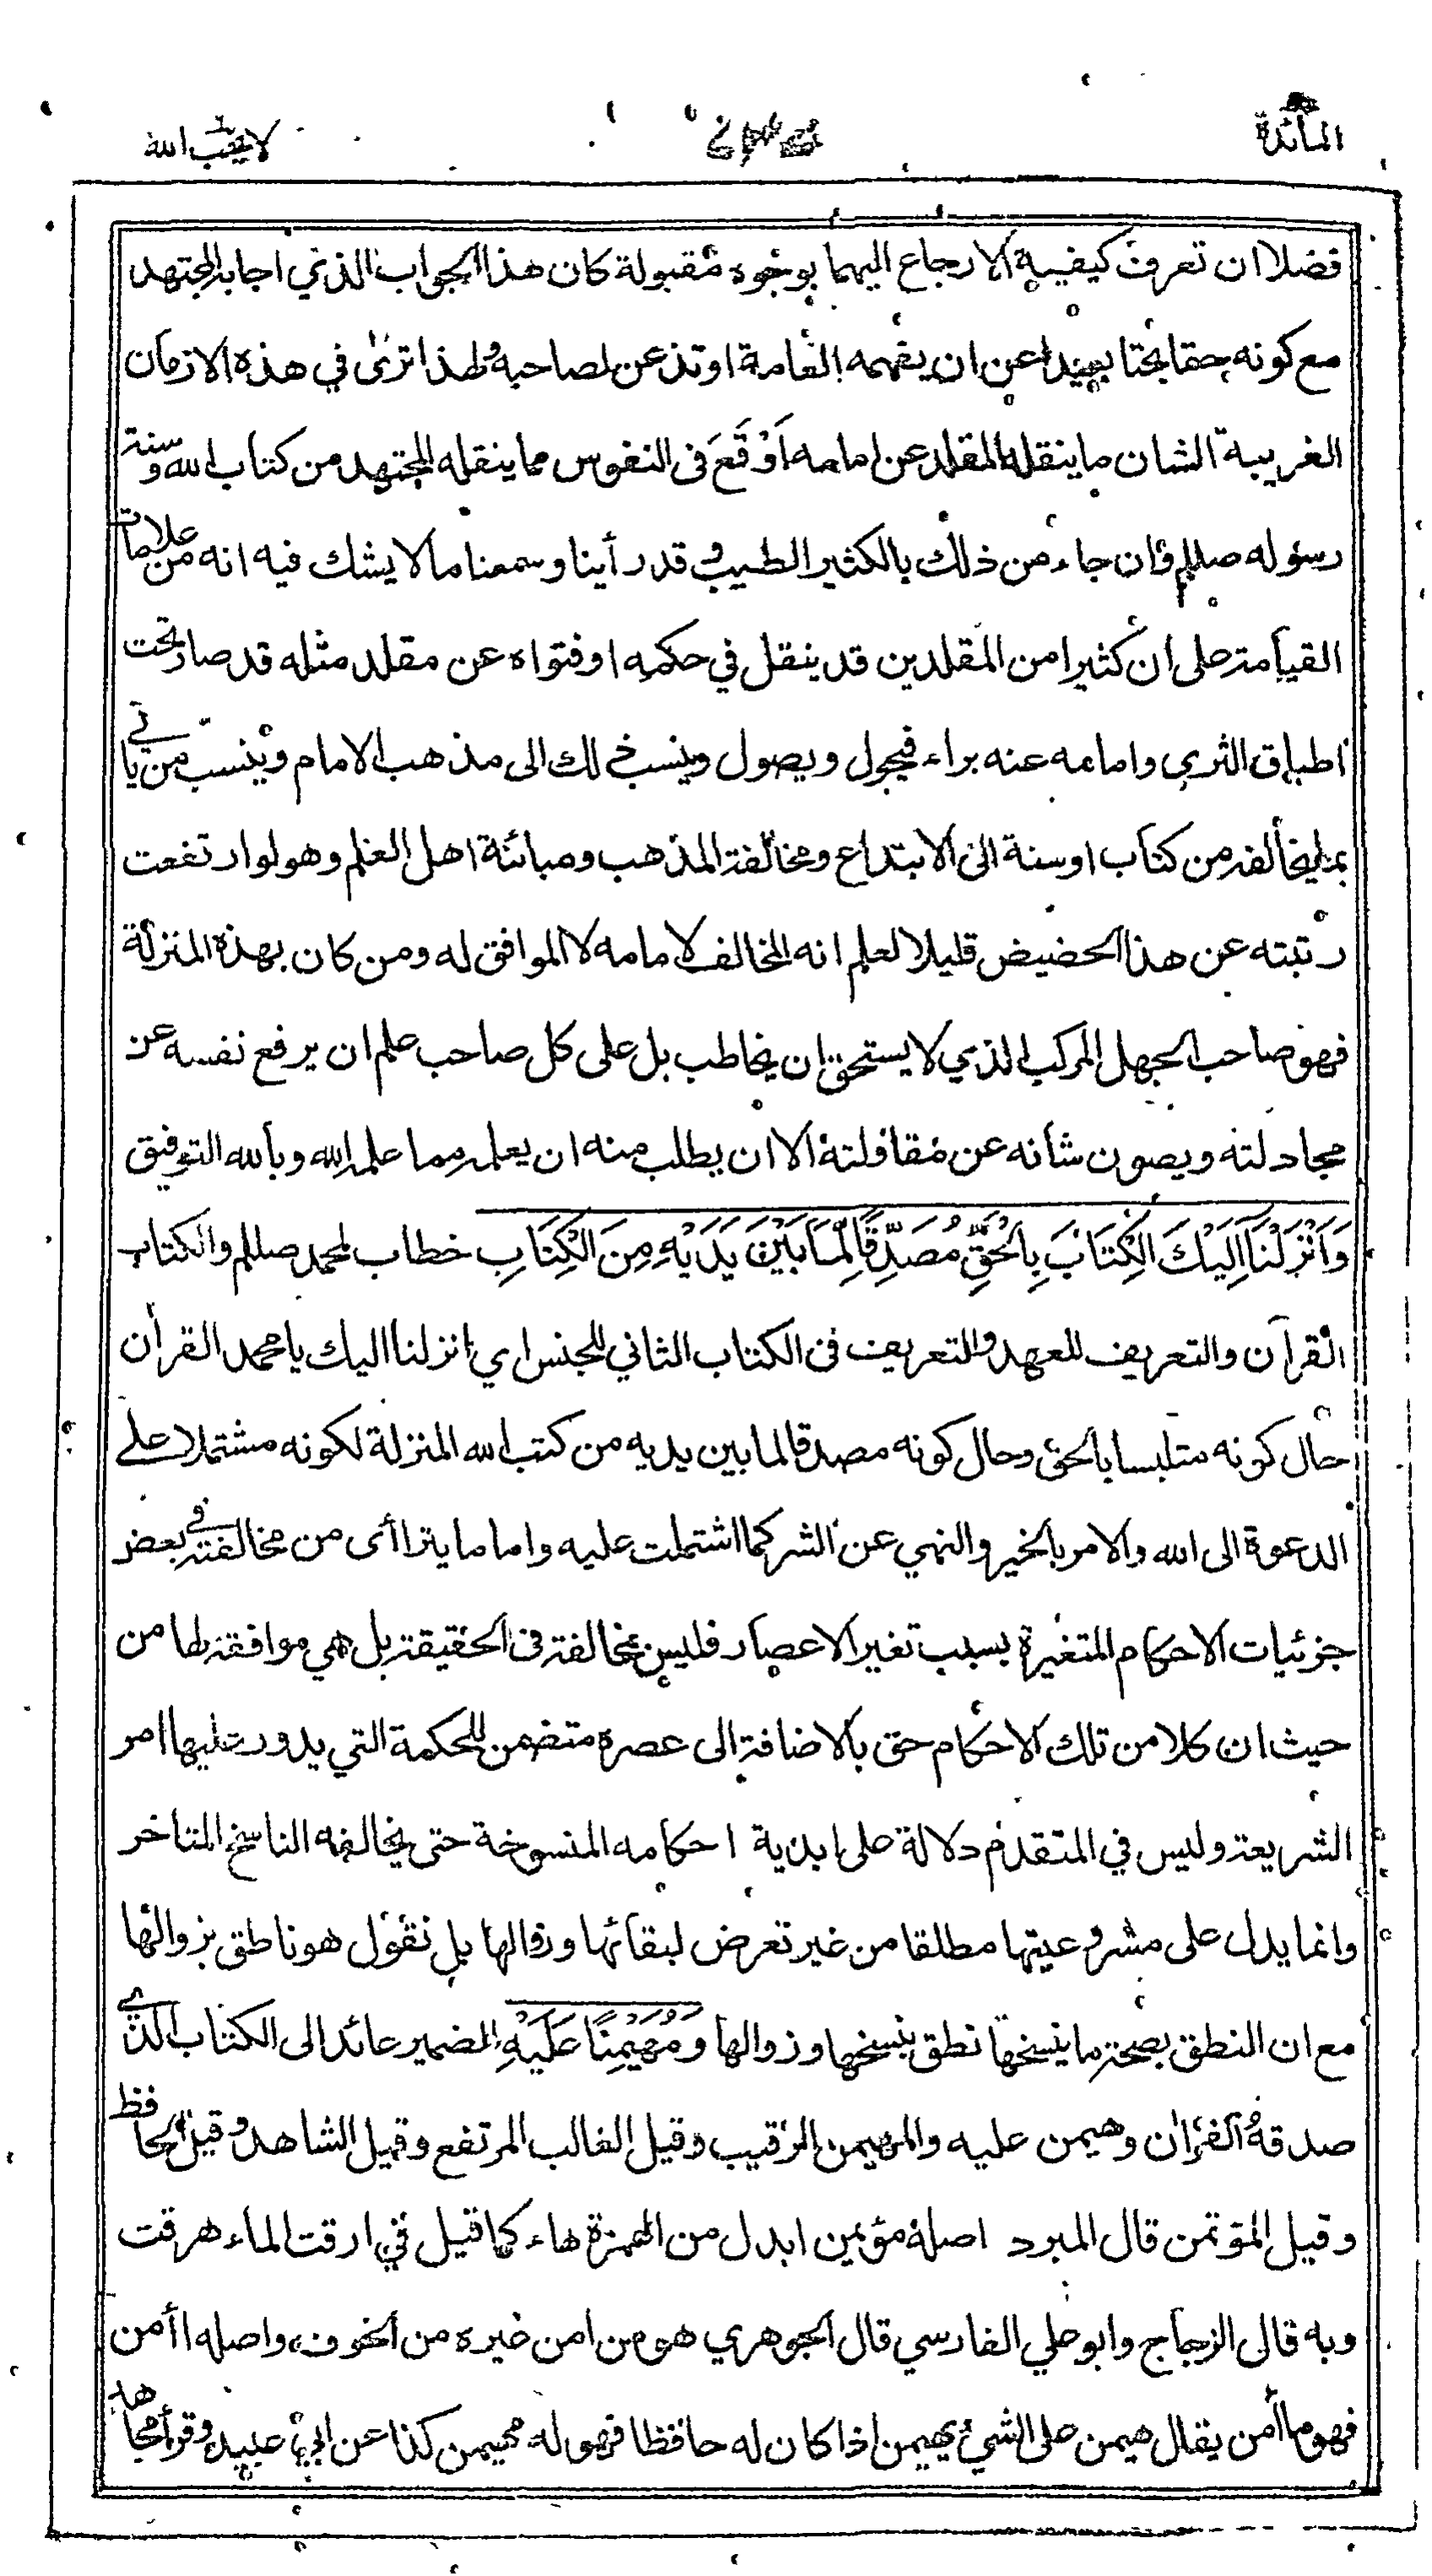 المائدة
لا يحب الله
فضلا ان تعرف كيفية الارجاع اليهما بوجوه مقبولة كان هذا الجواب الذي اجاب المجتهد
مع كونه حقا بحتا بعيدا عن ان يفهمه العامة او تذعن لصاحبه ولهذا ترى في هذه الازمان
الغريبة الشان ما ينقله المقلد عن امامه اَوْقَعَ فى النفوس مما ينقله المجتهد من كتاب الله وسنة
رسوله صللم وان جاء من ذلك بالكثير الطيب وقد رأينا وسمعنا ما لا يشك فيه انه من علامات
القيامة على ان كثيرا من المقلدين قد ينقل في حكمه او فتواه عن مقلد مثله قد صار تحت
اطباق الثرى وامامه عنه براء فيجول ويصول وينسب ذلك الى مذهب الامام وينسب من ياتي
بما يخالفه من كتاب او سنة الى الابتداع ومخالفة المذهب ومبائنة اهل العلم وهو لو ارتفعت
رتبته عن هذا الحضيض قليلا لعلم انه المخالف لامامه لا الموافق له ومن كان بهذه المنزلة
فهو صاحب الجهل المركب الذي لا يستحق ان يخاطب بل على كل صاحب علم ان يرفع نفسه عن
مجادلته ويصون شأنه عن مقاولته الا ان يطلب منه ان يعلمه مما علمه الله وبالله التوفيق
وَاَنْزَلْنَا اِلَيْكَ الْكِتَابَ بِالْحَقِّ مُصَدِّقًا لِّمَا بَيْنَ يَدَيْهِ مِنَ الْكِتَابِ خطاب لمحمد صللم والكتاب
القرآن والتعريف للعهد والتعريف فى الكتاب الثاني للجنس اي انزلنا اليك يا محمد القرأن
حال كونه متلبسا بالحق وحال كونه مصدقا لما بين يديه من كتب الله المنزلة لكونه مشتملا على
الدعوة الى الله والامر بالخير والنهي عن الشر كما اشتملت عليه واما ما يتراأى من مخالفته في بعض
جزئيات الاحكام المتغيرة بسبب تغير الاعصار فليس بمخالفة فى الحقيقة بل هي موافقة لها من
حيث ان كلا من تلك الاحكام حق بالاضافة الى عصره متضمن للحكمة التي يدور عليها امر
الشريعة وليس في المتقدم دلالة على ابدية احكامه المنسوخة حتى يخالفه الناسخ المتاخر
وانما يدل على مشروعيتها مطلقا من غير تعرض لبقائها وزوالها بل نقول هو ناطق بزوالها
مع ان النطق بصحة ما ينسخها نطق بنسخها وزوالها وَمُهَيْمِنًا عَلَيْهِ الضمير عائد الى الكتاب الذي
صدقه القرأن وهيمن عليه والمهيمن الرقيب وقيل الغالب المرتفع وقيل الشاهد وقيل الحافظ
وقيل المؤتمن قال المبرد اصله مؤيمن ابدل من الهمزة هاء كما قيل في ارقت الماء هرقت
وبه قال الزجاج وابو علي الفارسي قال الجوهري هو من امن غيره من الخوف واصله اأمن
فهو مأأمن يقال هيمن على الشئ يهيمن اذا كان له حافظا فهو له مهيمن كذا عن ابي عبيد وقرأ مجاهد